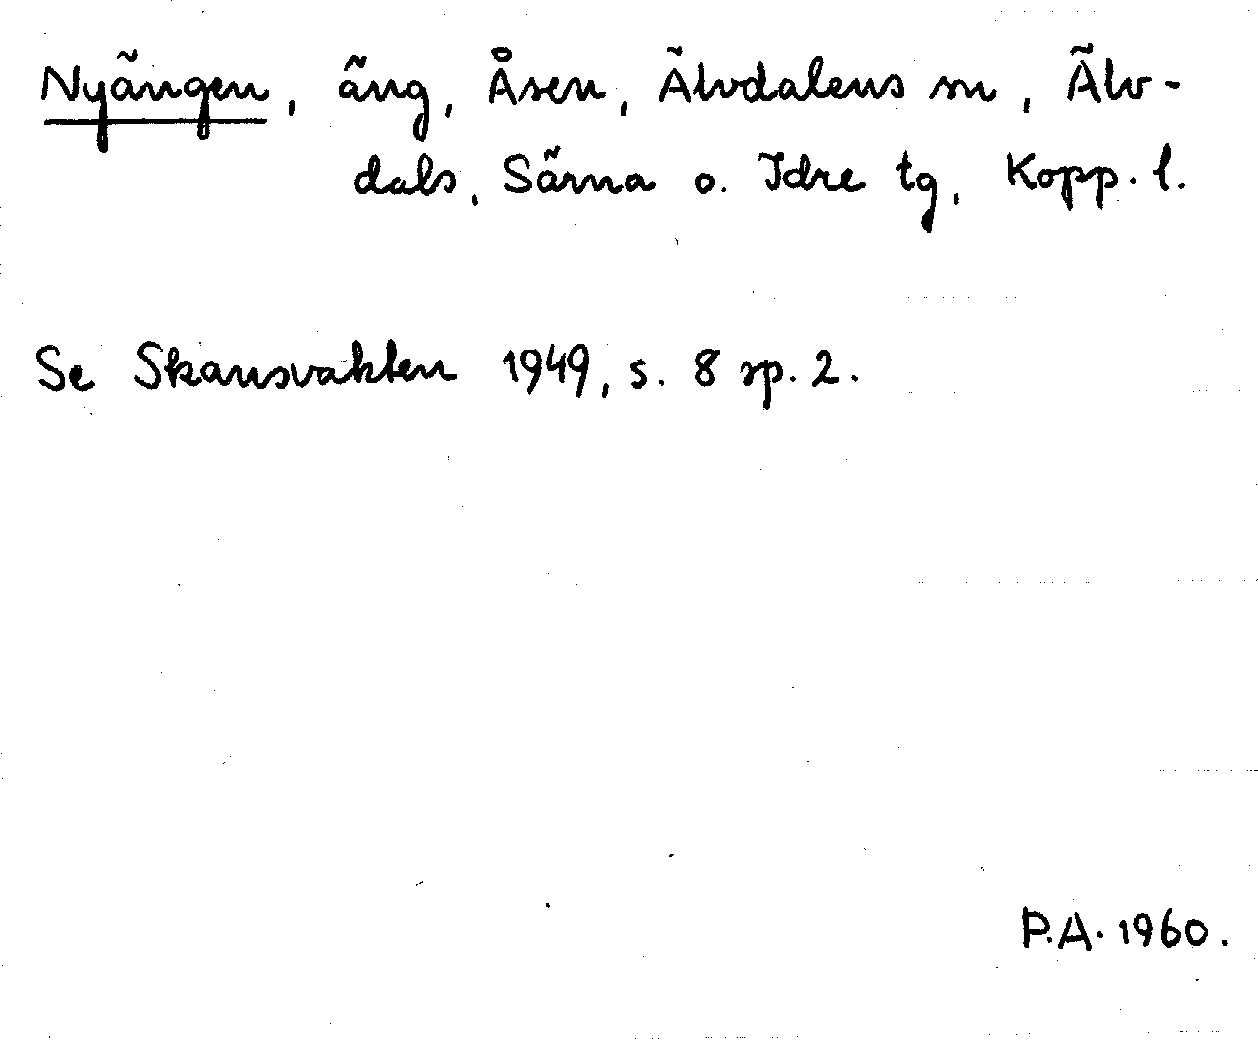 Nyängen, äng, Åsen, Älvdalens sn, Älv-
dals, Särna o. Idre tg, Kopp. l.
Se Skansvakten 1949, s. 8 sp. 2.
P.A. 1960.